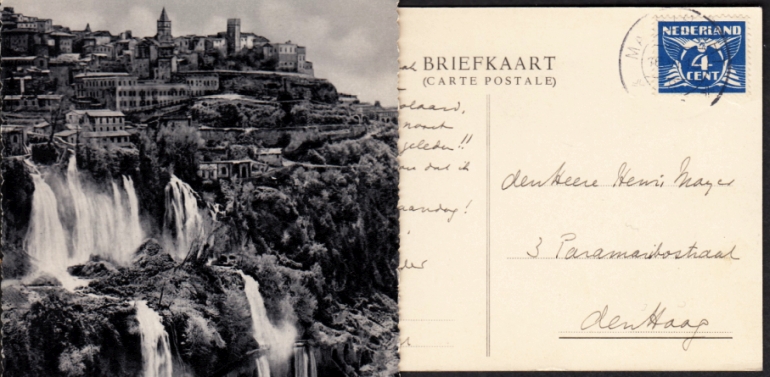 BRIEFKAART
(CARTE POSTALE)
NEDERLAND
4
CENT
noost
geleden!!
dat ik
aandag!
der
den Heere Henri Mayer
3 Paramaribostraat
den Haag